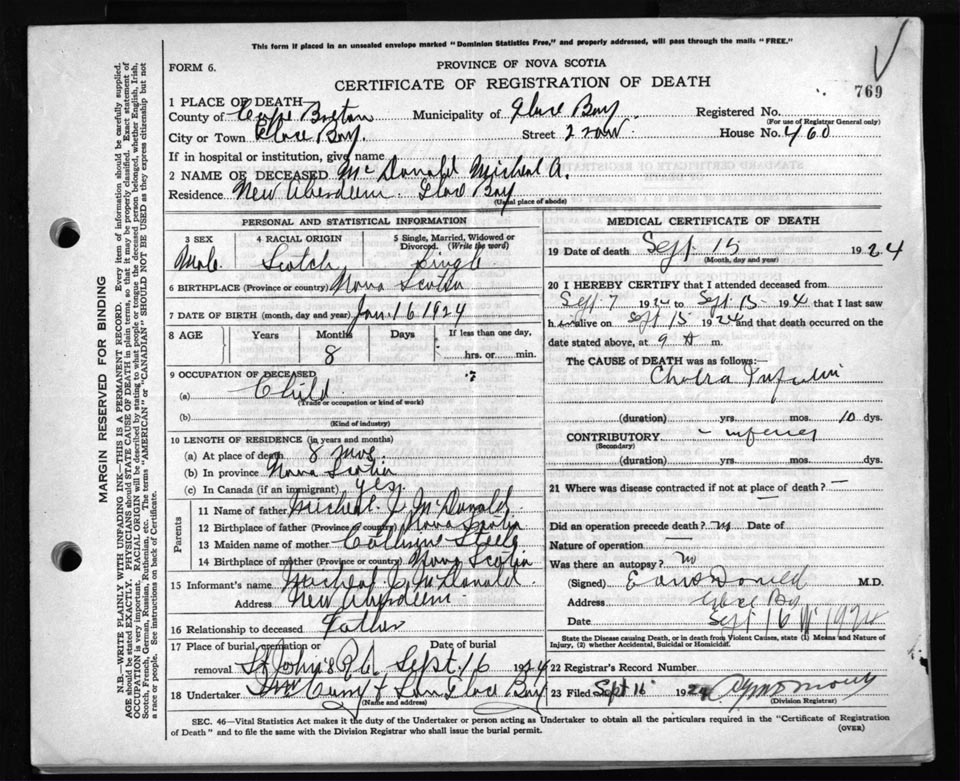 This form if placed in an unsealed envelope marked "Dominion Statistics Free," and properly addressed, will pass through the mails "FREE."
FORM 6.
PROVINCE OF NOVA SCOTIA
CERTIFICATE OF REGISTRATION OF DEATH
769
1 PLACE OF DEATH—
County of Cape Breton Municipality of Glace Bay Registered No.
(For use of Registrar General only)
City or Town Glace Bay. Street 2 row House No. 460
If in hospital or institution, give name
2 NAME OF DECEASED McDonald Micheal A.
Residence New Aberdeen. Glace Bay
(Usual place of abode)
PERSONAL AND STATISTICAL INFORMATION
3 SEX 4 RACIAL ORIGIN 5 Single, Married, Widowed or Divorced. (Write the word)
Male Scotch Single
6 BIRTHPLACE (Province or country) Nova Scotia
7 DATE OF BIRTH (month, day and year) Jan. 16 1924
8 AGE Years Months Days If less than one day,
8 hrs. or min.
9 OCCUPATION OF DECEASED
(a) Child
(Trade or occupation or kind of work)
(b)
(Kind of industry)
10 LENGTH OF RESIDENCE (in years and months)
(a) At place of death 8 mos.
(b) In province Nova Scotia
(c) In Canada (if an immigrant) yes.
Parents
11 Name of father Micheal J. McDonald
12 Birthplace of father (Province or country) Nova Scotia
13 Maiden name of mother Catherine Steele
14 Birthplace of mother (Province or country) Nova Scotia
15 Informant's name Micheal J. McDonald.
Address New Aberdeen
16 Relationship to deceased Father
17 Place of burial, cremation or removal Date of burial
St John's Sept. 16 1924
18 Undertaker Curry & Son Glace Bay
(Name and address)
MEDICAL CERTIFICATE OF DEATH
19 Date of death Sept. 15 1924
(Month, day and year)
20 I HEREBY CERTIFY that I attended deceased from
Sept 7 1924 to Sept. 15 1924 that I last saw
him alive on Sept 15 1924 and that death occurred on the
date stated above, at 9 A m.
The CAUSE of DEATH was as follows:—
Cholera Infantum
(duration) yrs. mos. 10 dys.
CONTRIBUTORY
(Secondary)
(duration) yrs. mos. dys.
21 Where was disease contracted if not at place of death? —
Did an operation precede death? no Date of
Nature of operation —
Was there an autopsy? no
(Signed) McDonald M.D.
Address Glace Bay
Date Sept 16 1924
State the Disease causing Death, or in death from Violent Causes, state (1) Means and Nature of Injury, (2) whether Accidental, Suicidal or Homicidal.
22 Registrar's Record Number
23 Filed Sept 16 1924
(Division Registrar)
SEC. 46—Vital Statistics Act makes it the duty of the Undertaker or person acting as Undertaker to obtain all the particulars required in the "Certificate of Registration
of Death" and to file the same with the Division Registrar who shall issue the burial permit.
(OVER)
MARGIN RESERVED FOR BINDING
N.B.—WRITE PLAINLY WITH UNFADING INK—THIS IS A PERMANENT RECORD. Every item of information should be carefully supplied.
AGE should be stated EXACTLY. PHYSICIANS should STATE CAUSE OF DEATH in plain terms, so that it may be properly classified. Exact statement of
OCCUPATION is very important. RACIAL ORIGIN will be described by stating to what people or tongue the deceased person belonged, whether English, Irish,
Scotch, French, German, Russian, Ruthenian, etc. The terms "AMERICAN" or "CANADIAN" SHOULD NOT BE USED as they express citizenship but not
a race or people. See instructions on back of Certificate.